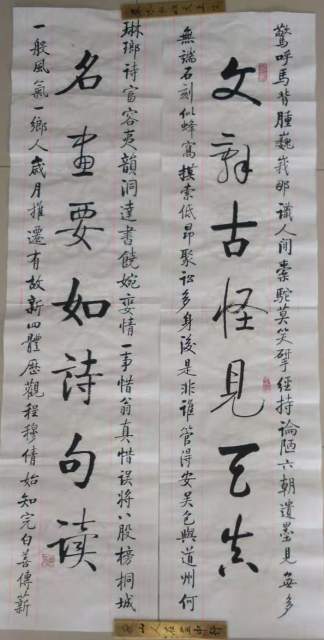 驚呼馬背腫巍峩那識人間橐駝莫笑揅經持論陋六朝遺墨見每多
文辭古怪見天真
無端石刻似蜂窩摸索低昂聚訟多身後是非誰管得安吳包與道州何
琳瑯詩富容夷韻洞達書饒婉孌情一事惜翁真惜誤將八股榜桐城
名畫要如詩句读
一般風氣一鄉人歲月推遷有故新四體歷觀程穆倩始知完白善傳薪